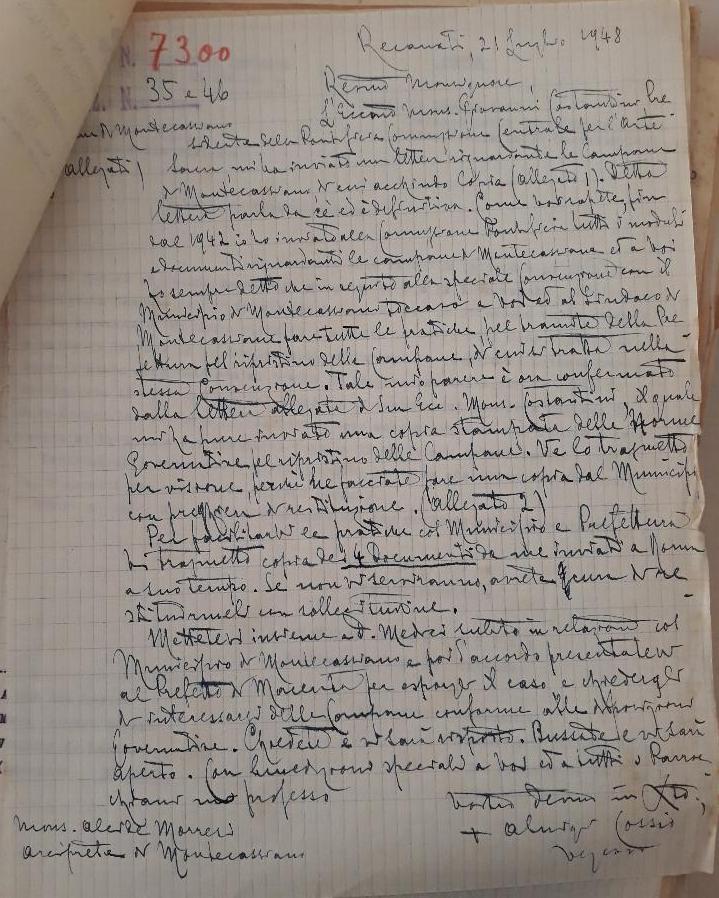 N. 7300
35 e 46
Recanati, 21 Luglio 1948
Rev.mo Monsignore,
L'Ecc.mo Mons. Giovanni Costantini, Pre
sidente della Pontificia Commissione Centrale per l'Arte
di Montecassiano
(allegati)
Sacra, mi ha inviato una lettera riguardante le Campane
di Montecassiano di cui acchiudo Copia (allegato 1). Detta
lettera parla da sè ed è definitiva. Come voi sapete, fin
dal 1942 io ho inviato alla Commissione Pontificia tutti i moduli
e documenti riguardanti le campane di Montecassiano ed a voi
ho sempre detto che in seguito alla speciale Convenzione con il
Municipio di Montecassiano toccava a voi ed al Sindaco di
Montecassiano fare tutte le pratiche pel tramite della Pre
fettura pel ripristino delle Campane, di cui si tratta nella
stessa Convenzione. Tale mio parere è ora confermato
dalla lettera allegata di Sua Ecc. Mons. Costantini, il quale
mi ha pure inviato una copia stampata delle Norme
Governative pel ripristino delle Campane. Ve lo trasmetto
per visione, perchè ne facciate fare una copia dal Municipio
con preghiera di restituzione. (allegato 2)
Per facilitarvi le pratiche col Municipio e Prefettura
vi trasmetto copia dei 4 Documenti da me inviati a Roma
a suo tempo. Se non vi serviranno, avrete cura di re
stituirmeli con sollecitudine.
Mettetevi insieme a D. Medei subito in relazione col
Municipio di Montecassiano e poi d'accordo presentatevi
al Prefetto di Macerata per esporgli il caso e chiedergli
di interessarsi delle Campane conforme alle disposizioni
Governative. Chiedete e vi sarà risposto. Bussate e vi sarà
aperto. Con benedizioni speciali a voi ed a tutti i Parroc
chiani mi professo
vostro dev.mo in Xto.
+ Aluigi Cossio
Vescovo
Mons. Alcide Morresi
Arciprete di Montecassiano